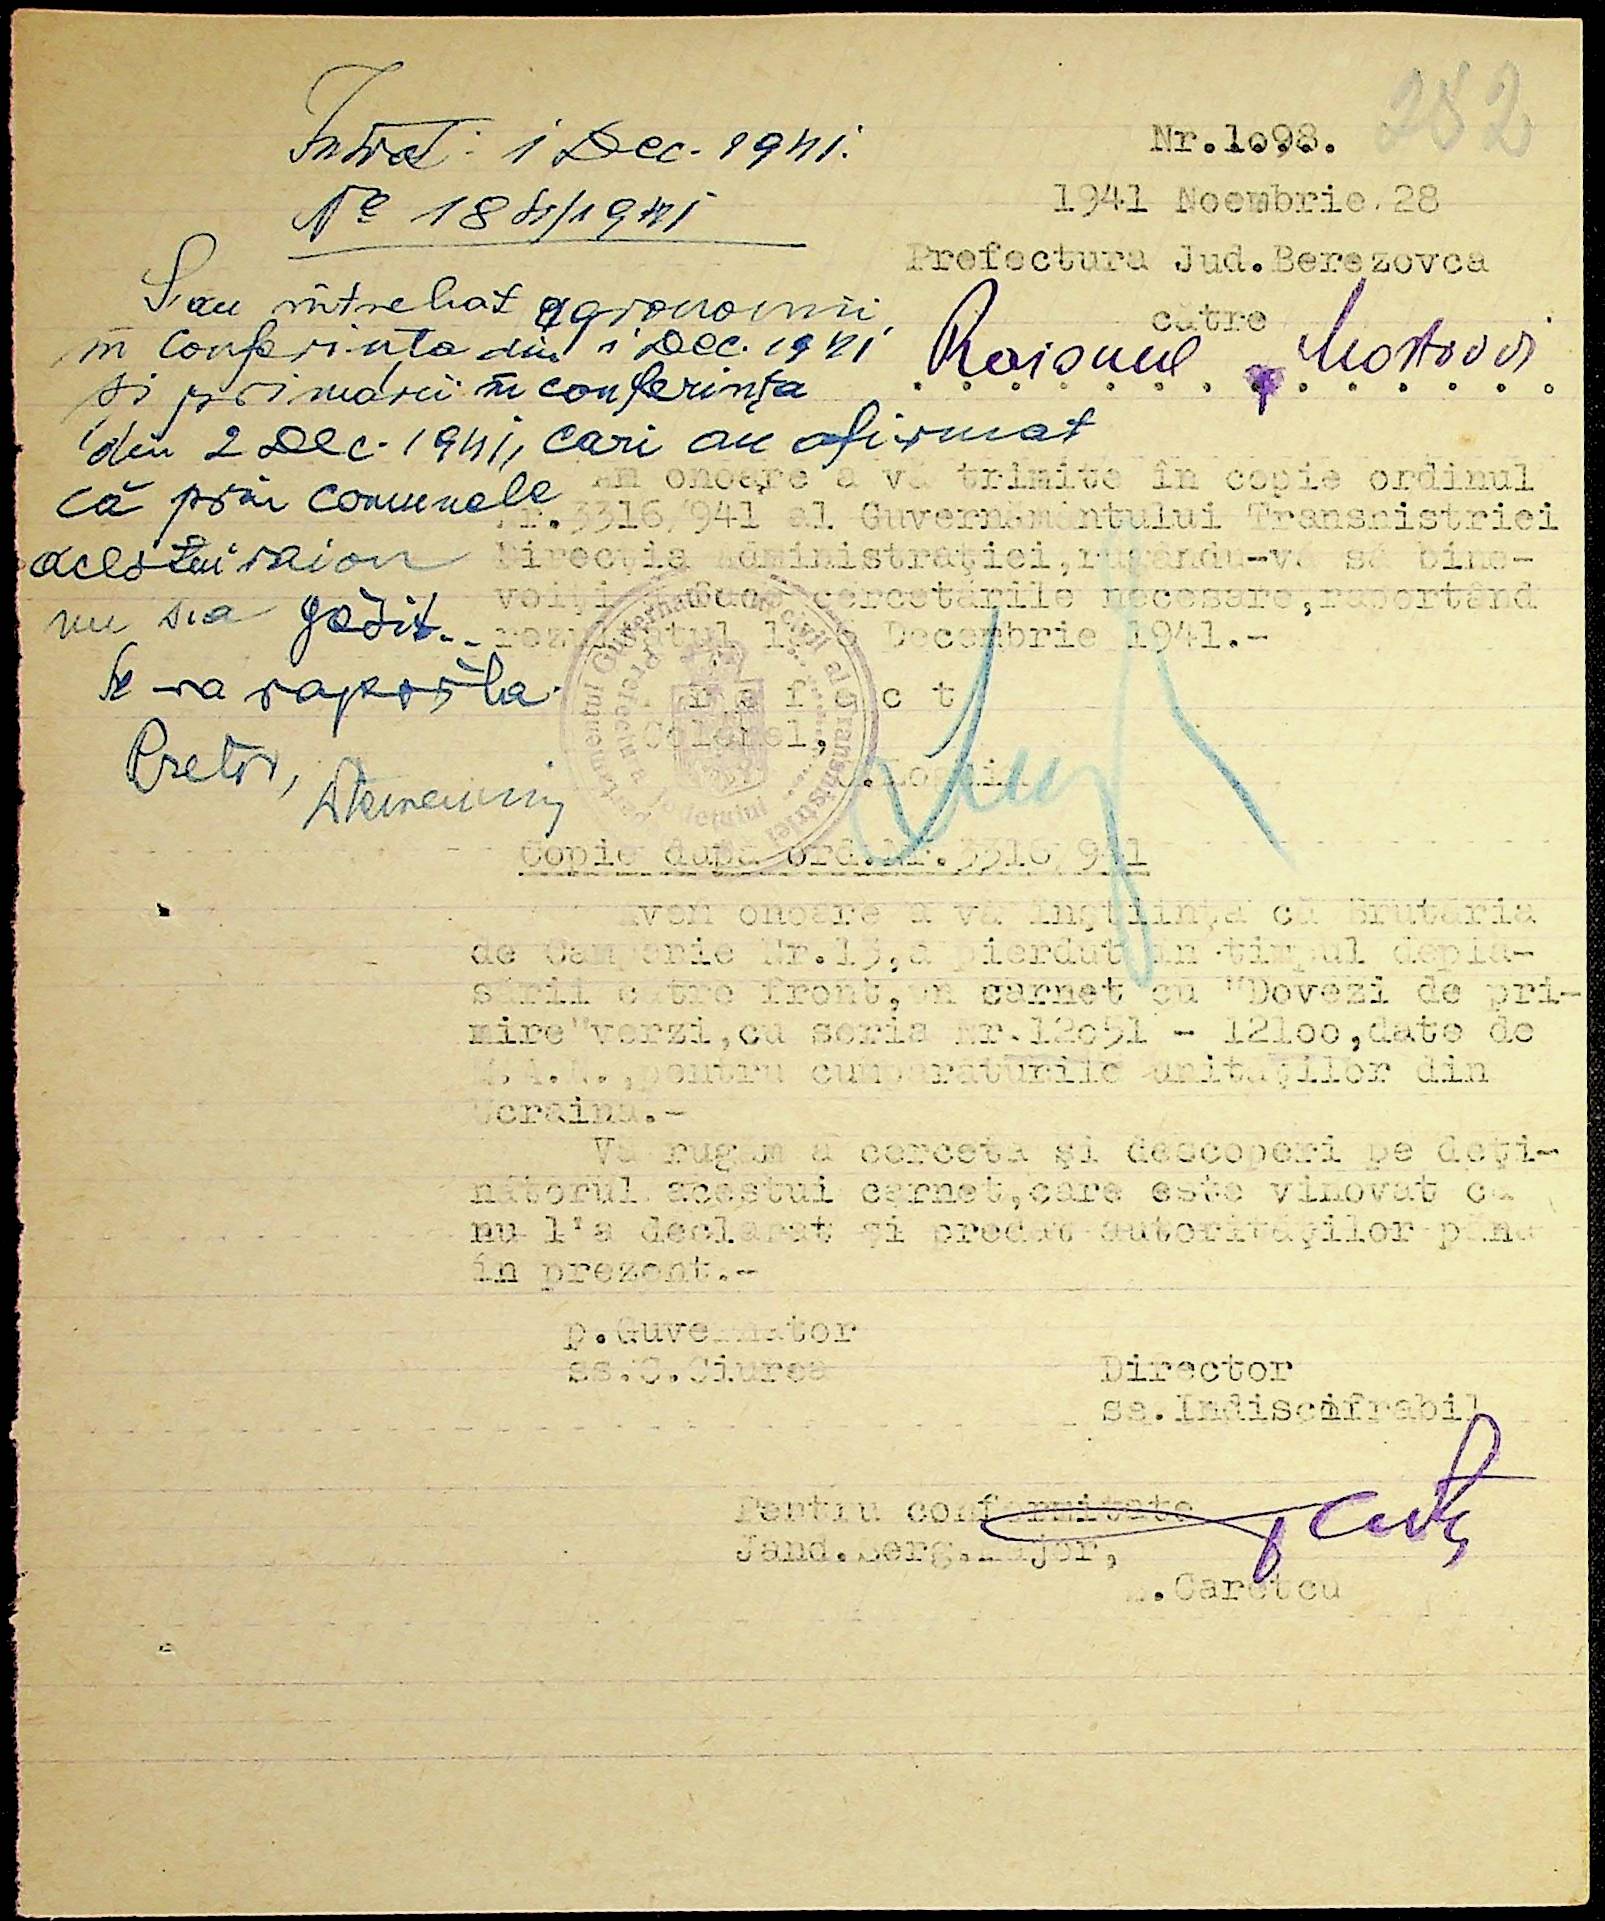 252
Nr.1098.
1941 Noembrie 28
Prefectura Jud.Berezovca
către
Raionul Mostovoi
Intrat: 1 Dec. 1941.
No 18 /1941
S'au intrebat agronomii
în conferința din 1 Dec. 1941
si primarii în conferința
din 2 Dec. 1941, cari au afirmat
că prin comunele
acestui raion
nu s'a găsit..
Se va raporta.
Pretor,
Am onoare a vă trimite în copie ordinul
Nr.3316/941 al Guvernământului Transnistriei
Direcția Administrației,rugându-vă să bine-
voiți a face cercetările necesare,raportând
rezultatul la 6 Decembrie 1941.-
P r e f e c t
Colonel,
.Loghin
Guvernământul civil al Transnistriei
Prefectura Județului
Copie după ord.Nr.3316/941
Avem onoare a vă înștiința că Brutăria
de Campanie Nr.13,a pierdut în timpul depla-
sării către front,un carnet cu "Dovezi de pri-
mire"verzi,cu seria Nr.12051 - 12100,date de
M.A.N.,pentru cumpărăturile unităților din
Ucraina.-
Vă rugăm a cerceta și descoperi pe deți-
nătorul acestui carnet,care este vinovat că
nu l'a declarat și predat autorităților până
în prezent.-
p.Guvernator
ss.C.Ciurea
Director
ss.Indiscifrabil
Pentru conformitate
Jand.Serg.Major,
.Caretcu